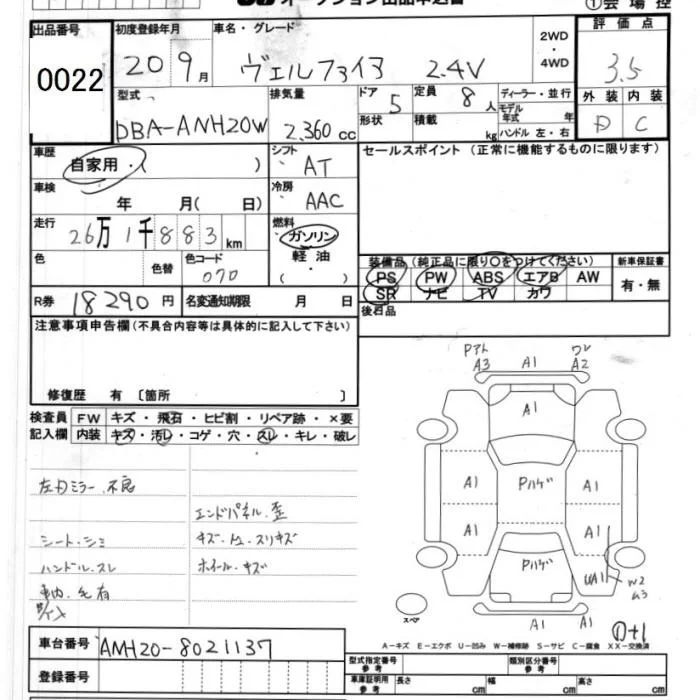 オークション出品申込書
①会場控
出品番号 初度登録年月 車名・グレード 2WD・4WD 評価点
0022 20 9月 ヴェルファイア 2.4V 3.5
型式 排気量 ドア 定員 ディーラー・並行 外装 内装
DBA-ANH20W 2.360cc 5 8人 モデル年式 年 D C
形状 積載 kg ハンドル 左・右
車歴 シフト セールスポイント (正常に機能するものに限ります)
自家用・( ) AT
車検 冷房
年 月( 日) AAC
走行 燃料
26万1千883km ガソリン
色 色替 色コード 軽油
070 (・)
装備品 (純正品に限り○をつけてください) 新車保証書
PS PW ABS エアB AW 有・無
SR ナビ TV カワ
R券 18290円 名変通知期限 月 日 後日品
注意事項申告欄 (不具合内容等は具体的に記入して下さい)
修復歴 有 〔箇所 〕
検査員 FW キズ・飛石・ヒビ割・リペア跡・×要
記入欄 内装 キズ・汚レ・コゲ・穴・スレ・キレ・破レ
左右ミラー不良
エンドパネル・歪
シート・シミ キズ・凹・スリキズ
ハンドル・スレ ホイール・キズ
車内・毛有
Pアト ワレ
A3 A1 A2
A1
A1 Pハゲ A1
A1 A1
Pハゲ UA1 W2
A1 A1
スペア
A-キズ E-エクボ U-凹み W-補修跡 S-サビ C-腐食 XX-交換済
車台番号 ANH20-8021137
登録番号
型式指定番号 参考 類別区分番号 参考
車庫証明用 参考 長さ cm 幅 cm 高さ cm